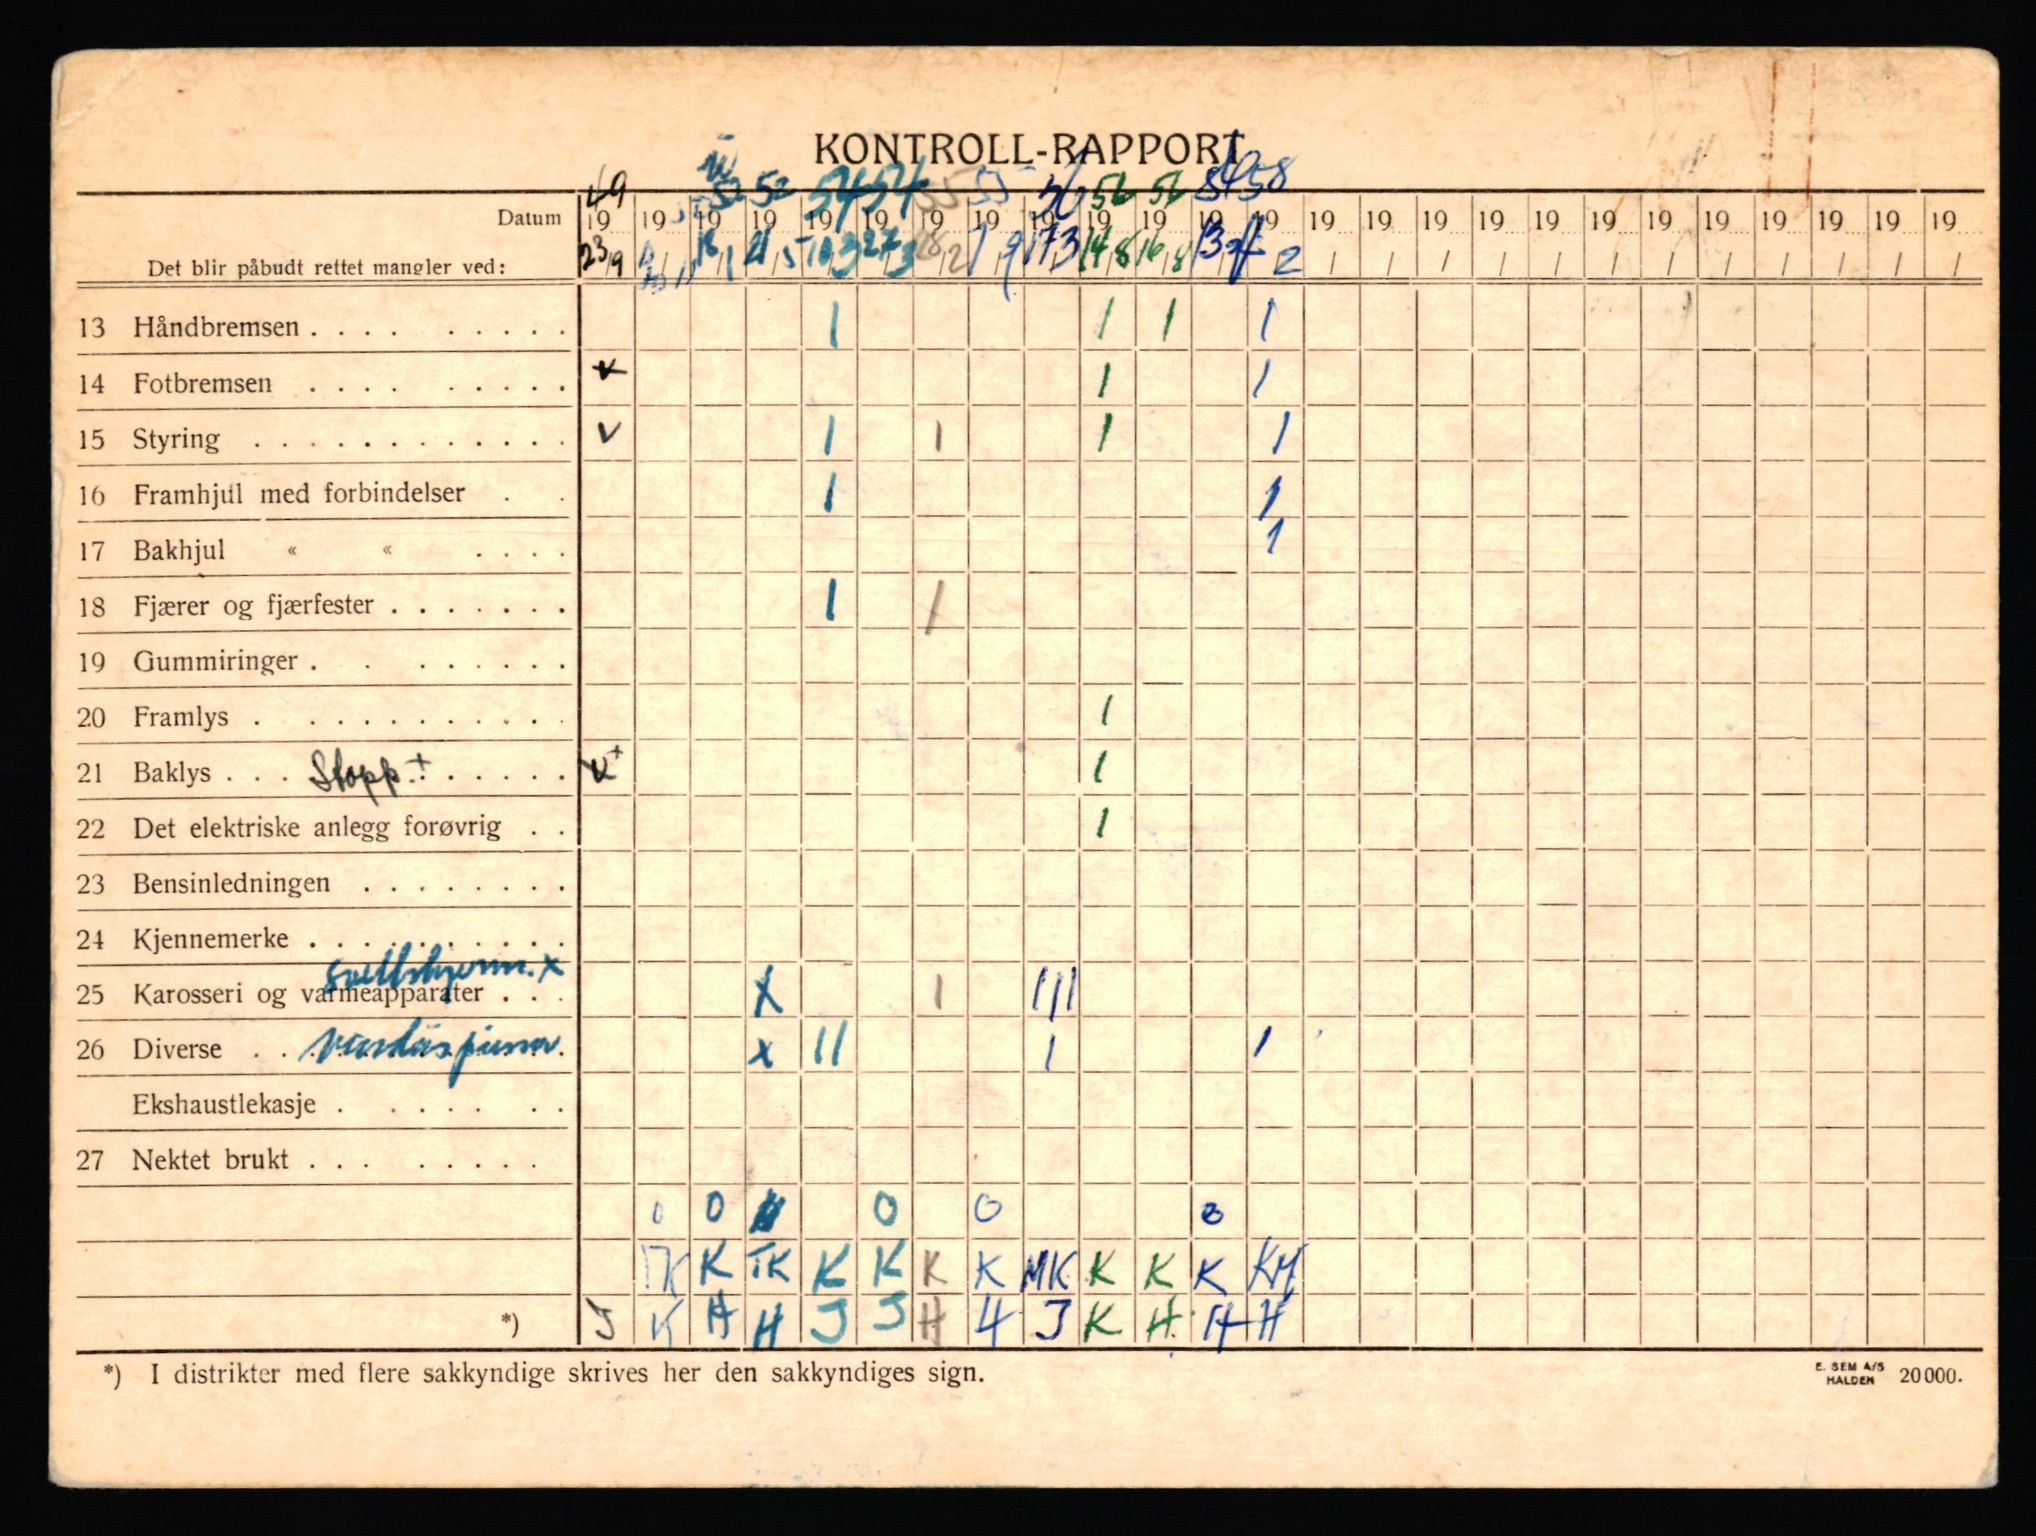 KONTROLL-RAPPORT
49 52 52 54 54 55 55 56 56 56 58
Datum 19 19 19 19 19 19 19 19 19 19 19 19 19 19 19 19 19 19 19 19 19 19 19 19 19
Det blir påbudt rettet mangler ved: 23/9 18/1 21/5 10/3 27/3 28/2 1/9 17/3 14/8 16/8 13 2
13 Håndbremsen . . . . . . . . . 1 1 1 1
14 Fotbremsen . . . . . . . . . v 1 1
15 Styring . . . . . . . . . . . . v 1 1 1 1
16 Framhjul med forbindelser . . 1 1
17 Bakhjul « « . . . . 1
18 Fjærer og fjærfester . . . . . . . 1 1
19 Gummiringer . . . . . . . .
20 Framlys . . . . . . . . . . . 1
21 Baklys . . . Stopp + . . . . . . v+ 1
22 Det elektriske anlegg forøvrig . . 1
23 Bensinledningen . . . . . . . .
24 Kjennemerke . . . . . . . . . .
x
25 Karosseri og varmeapparater . . . x 1 111
26 Diverse . . . x 11 1 1
Ekshaustlekasje . . . . . . .
27 Nektet brukt . . . . . . . .
0 0 0 0 0
TK K TK K K K K MK K K K KM
J K H H J J H H J K H H H
*)
*) I distrikter med flere sakkyndige skrives her den sakkyndiges sign.
E. SEM A/S
HALDEN 20000.